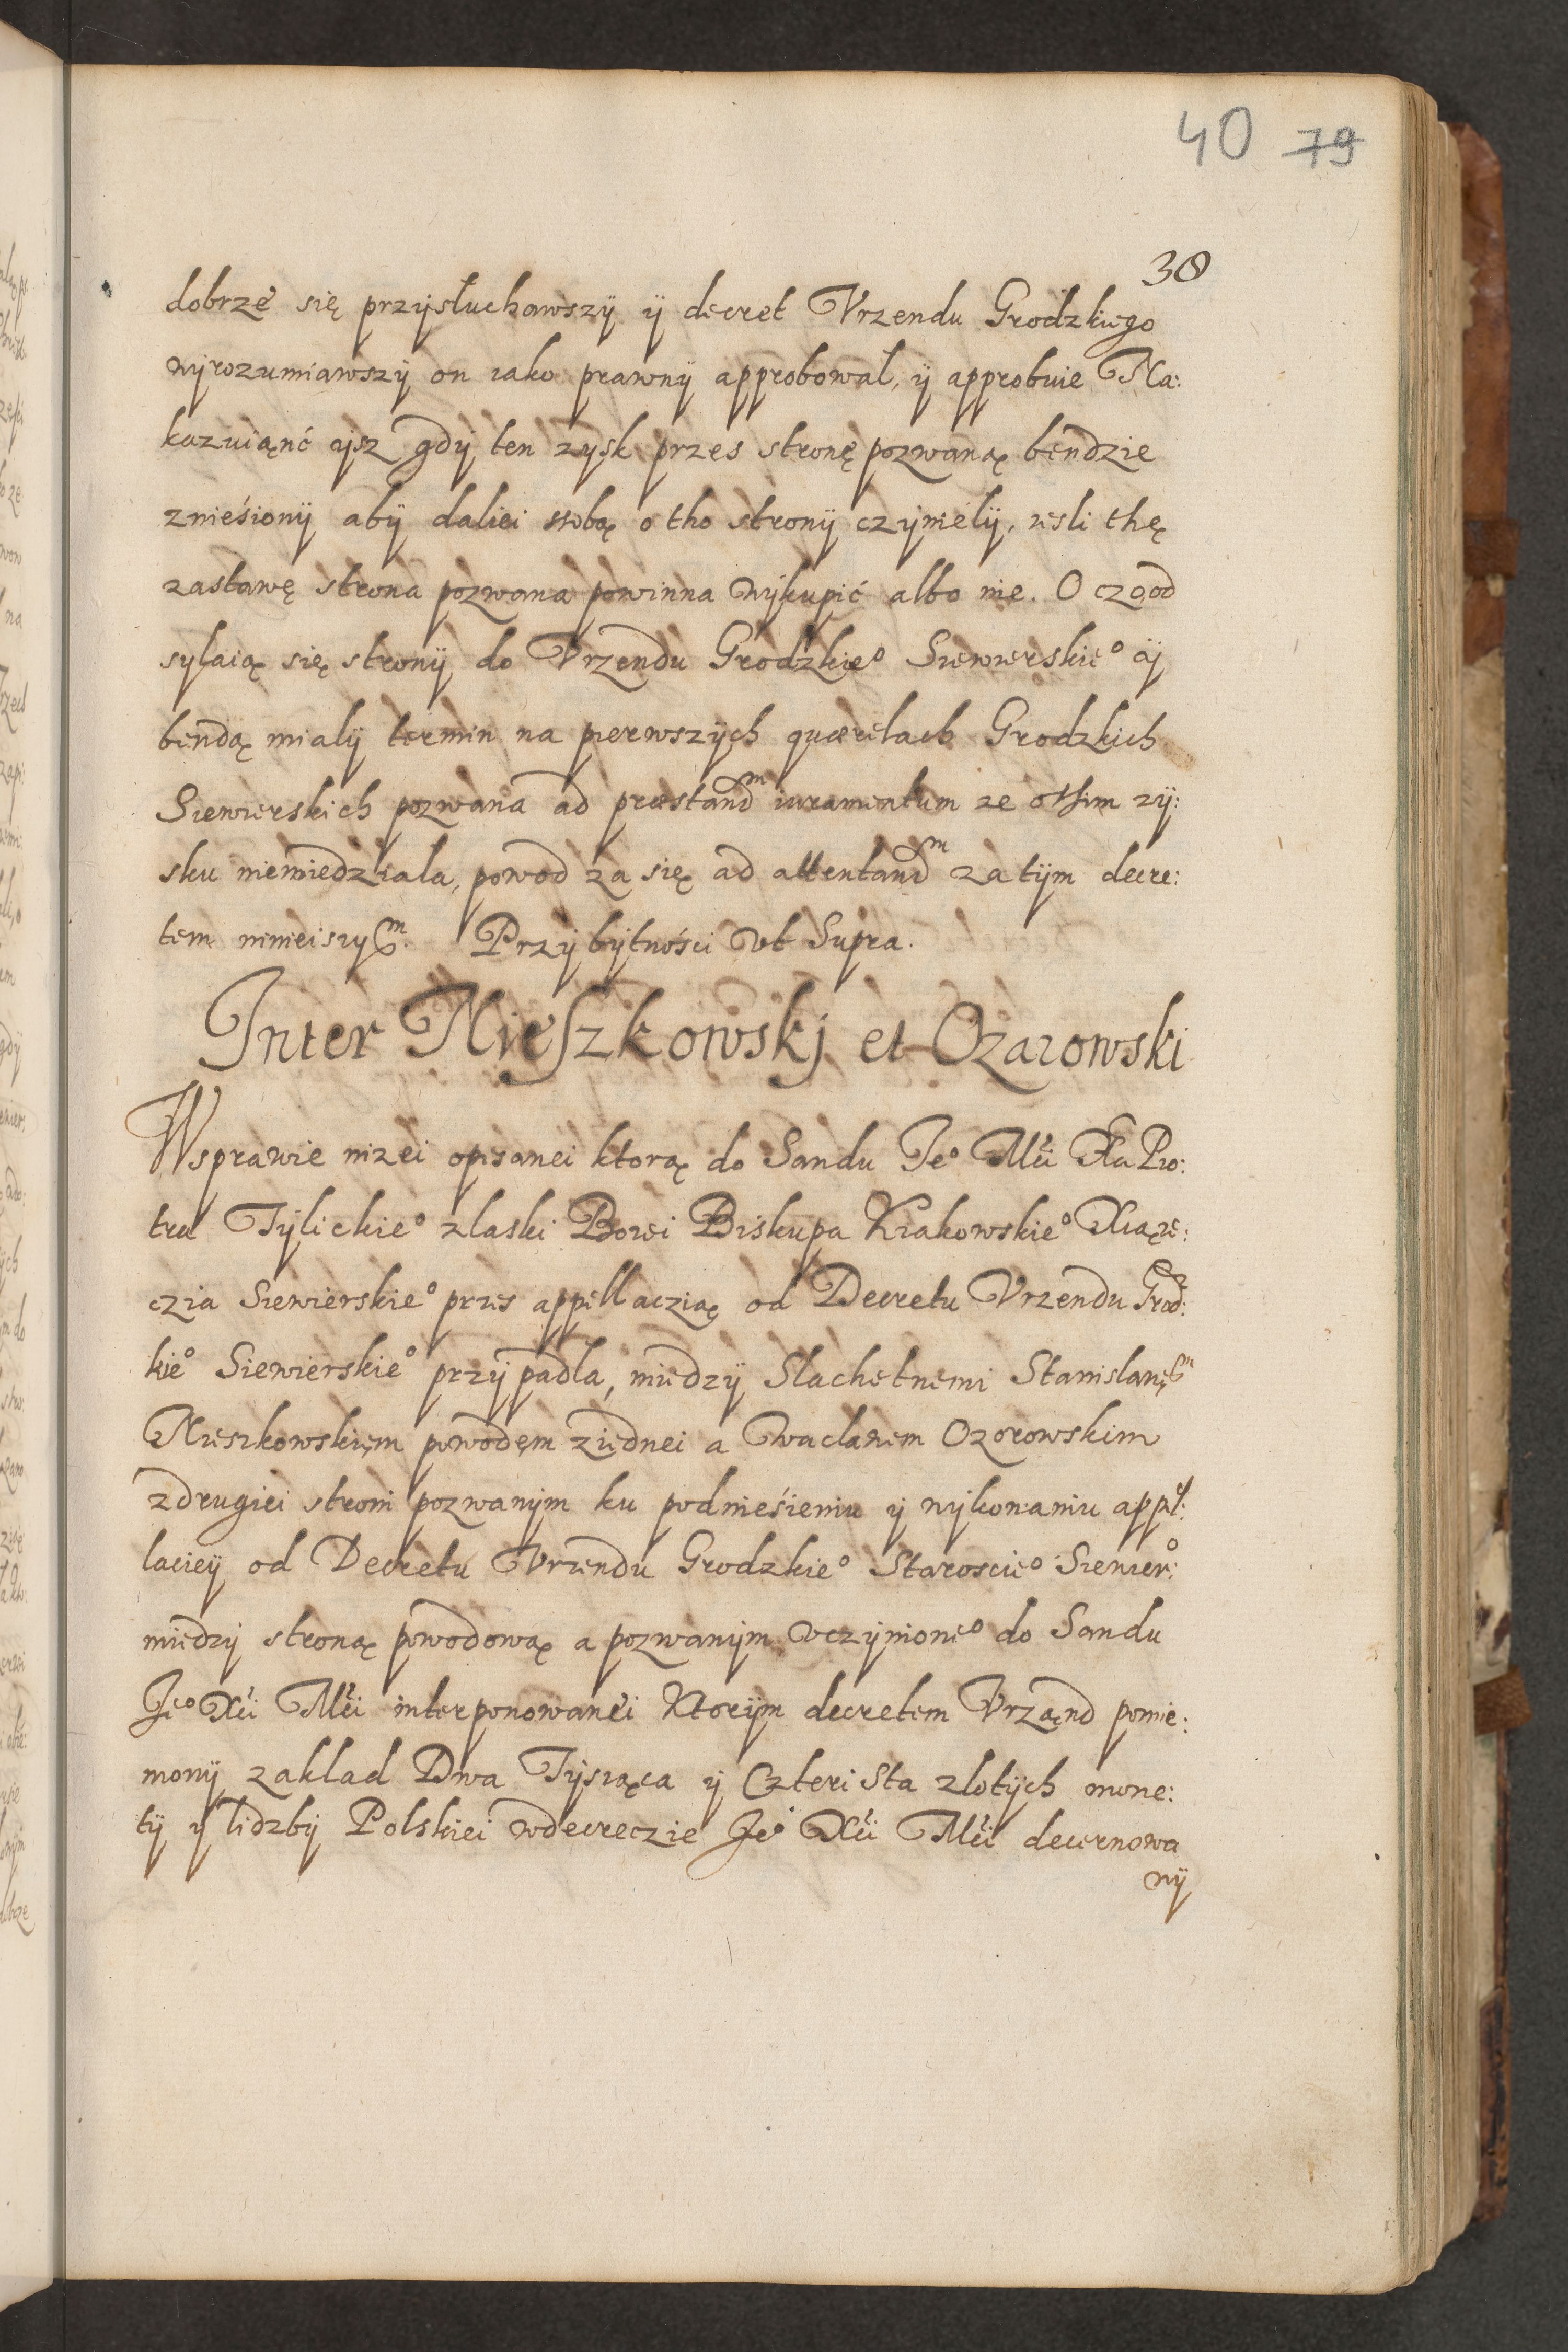 40 79
38
dobrze się przysłuchawszÿ ÿ decret Vrzendu Grodzkiego
wyrozumiawszÿ on iako prawnÿ approbowal, ÿ approbuie Na:
kazuiąnć ysz gdÿ ten zysk przes stronę pozwaną bendzie
znieśionÿ abÿ daliei sobą o tho stronÿ czÿnielÿ, iesli thę
zastawę strona pozwana powinna wÿkupić albo nie. O czo od
sylaią się stronÿ do Vrzendu Grodzkie° Siewierskie° ÿ
bendą mialÿ termin na pierwszÿch querelach Grodzkich
Siewierskich pozwana ad præstand^m iuramentum ze otÿm zÿ:
sku niewiedziala, powod za się ad attentand^m za tÿm decre:
tem ninieiszy^m. Przÿ bÿtnośći vt Supra.
Inter Mieszkowskj et Ozarowski
Wsprawie nizei opisanei ktorą do Sandu Je° Mći Xa Pio:
tra Tÿlickie° zlaski Bozei Biskupa Krakowskie° Xiąże:
czia Siewierskie° przes appellaczią od Decretu Vrzendu Grod:
kie° Siewierskie° przÿpadla, miedzÿ Slachetnemi Stanislawe^m
Mieszkowskięm powodęm ziednei a Waclawem Ozorowskim
zdrugiei stroni pozwanÿm ku podnieśieniu ÿ wykonaniu appel:
laciey od Decretu Vrzendu Grodzkie° Staroscie° Siewier°:
miedzÿ stroną powodową a pozwanÿm vczÿnione° do Sandu
Je° Xći Mći interponowanei Ktorÿm decretem Vrząnd pomie:
monÿ zaklad Dwa Tÿsiąca ÿ Czteri Sta zlotÿch mone:
tÿ ÿ lidzbÿ Polskiei wdecreczie Je° Xći Mći decernowa
nÿ